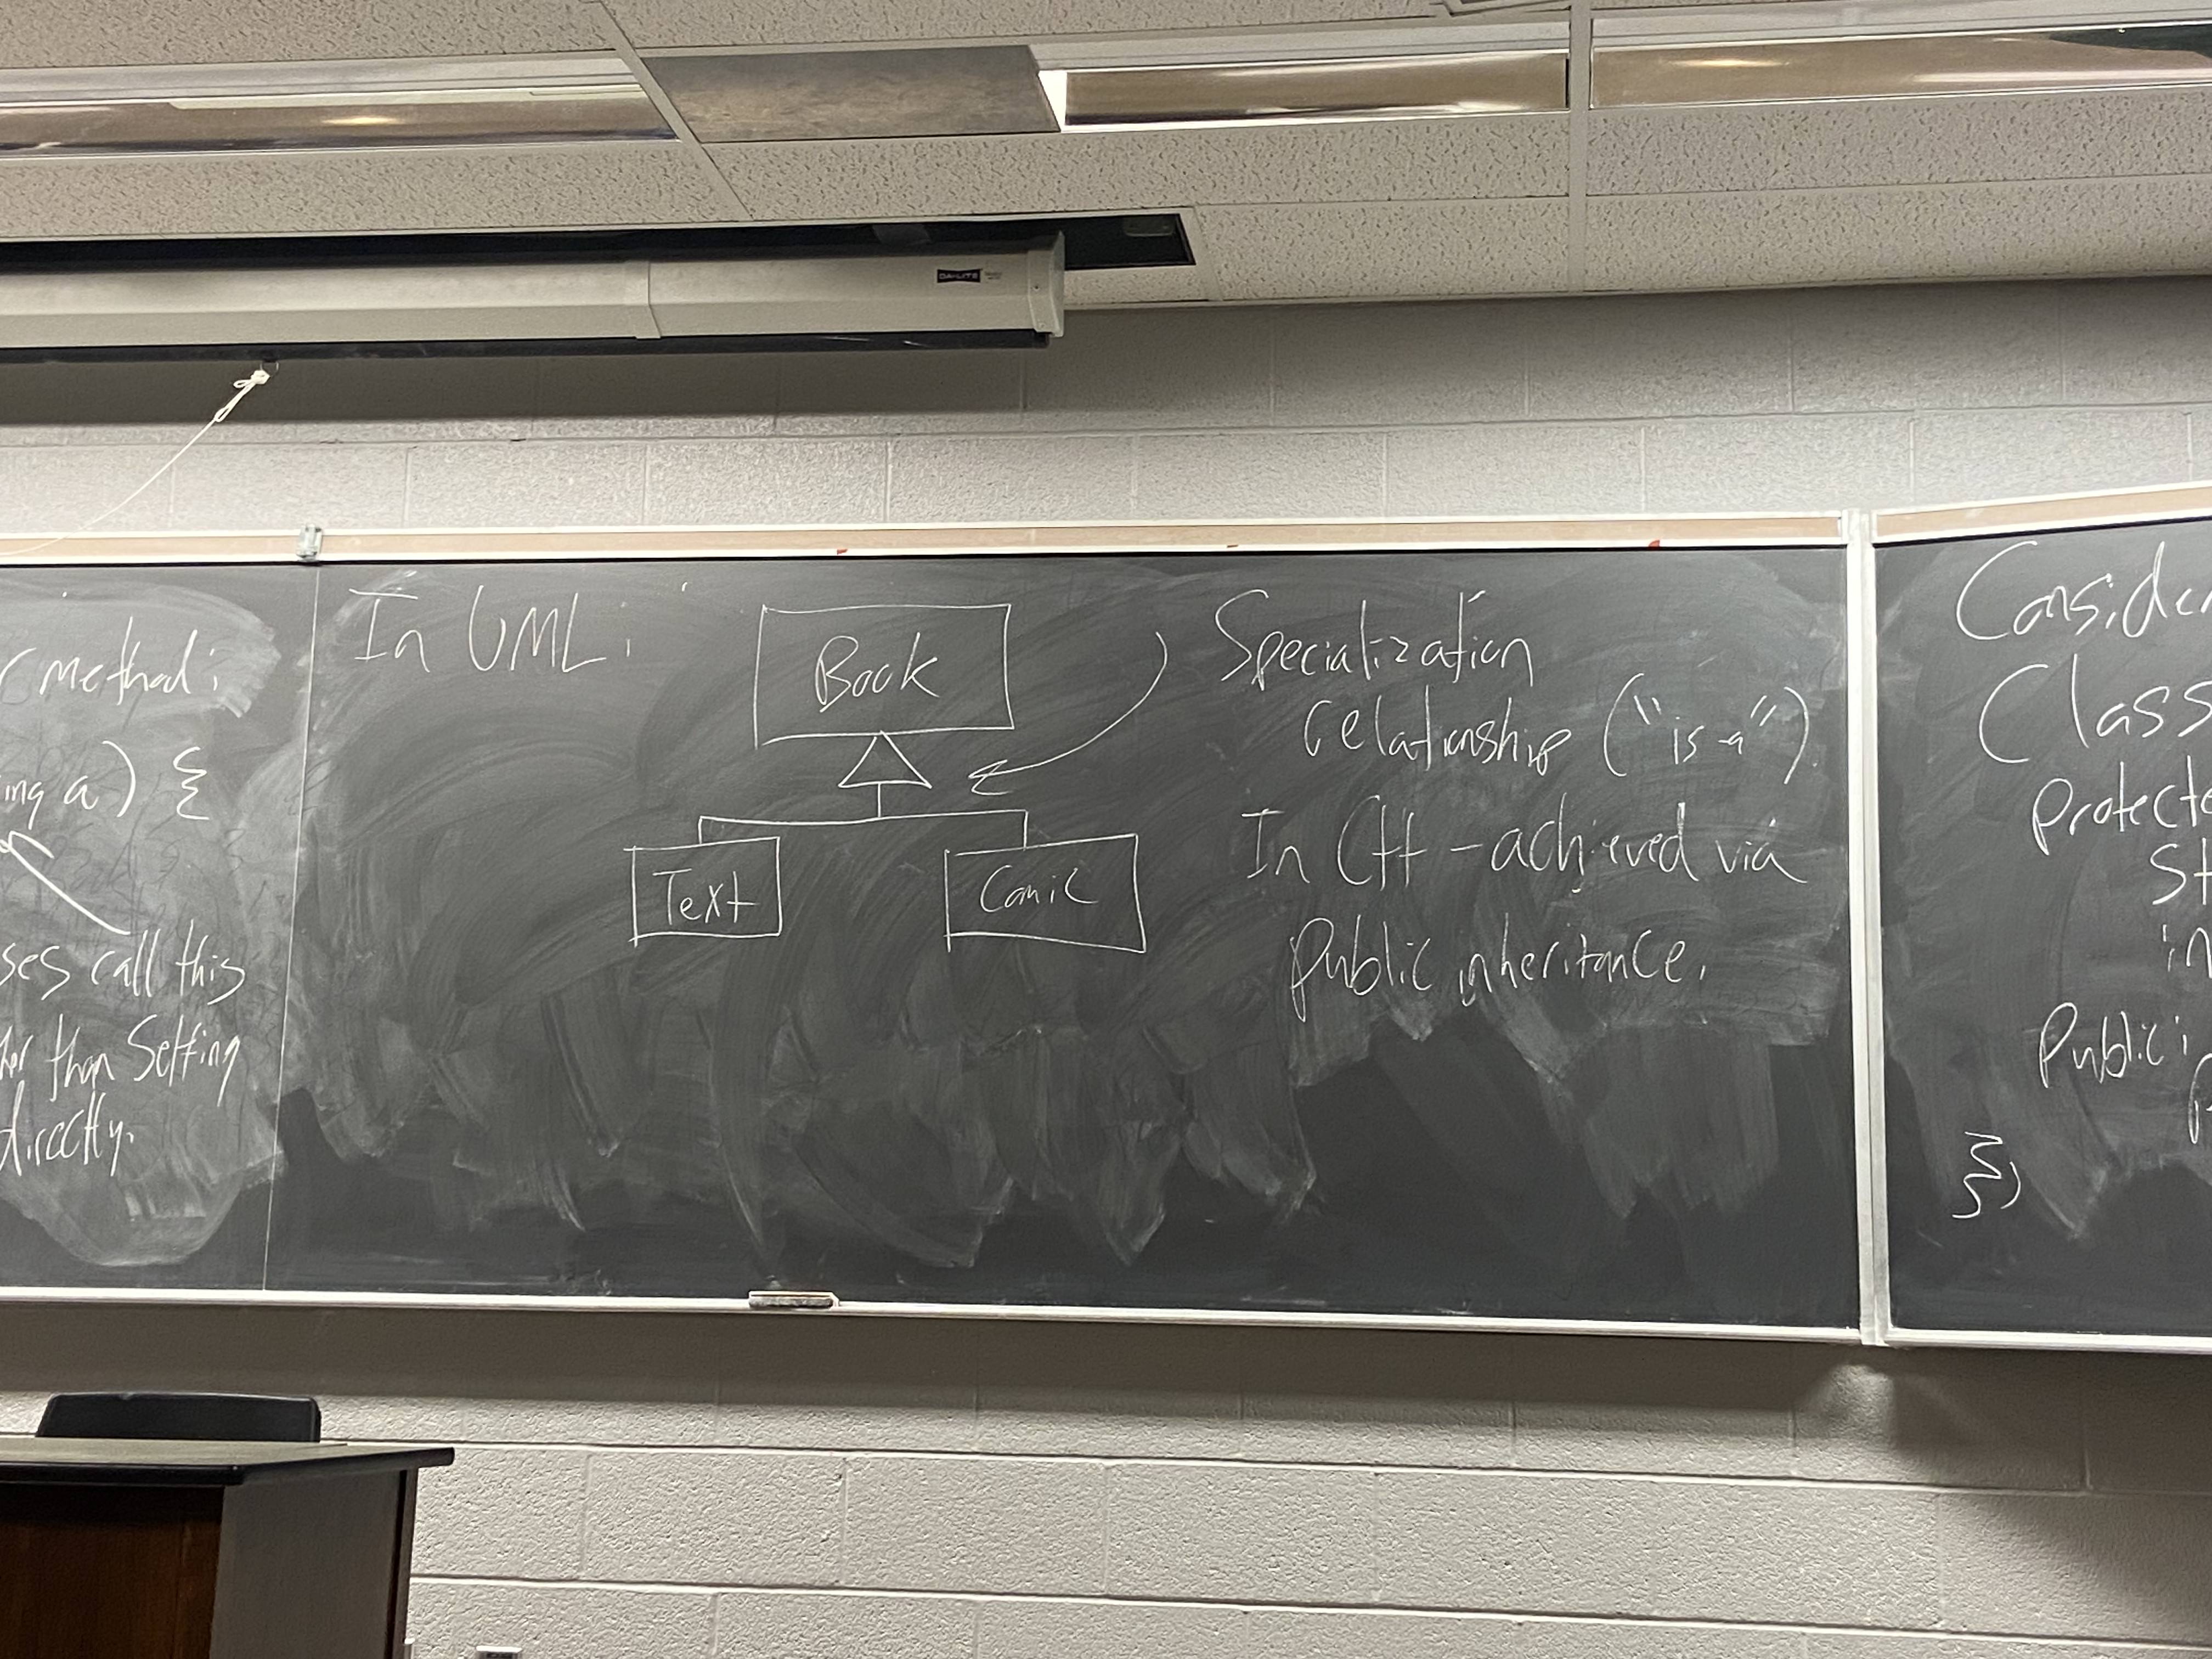 DA-LITE
r method:
ing a) {
ses call this
than Setting
directly.
In UML:
Book
Text
Comic
Specialization
relationship ("is a").
In C++ - achieved via
public inheritance.
Consider
Class
protecte
St
in
Public:
};